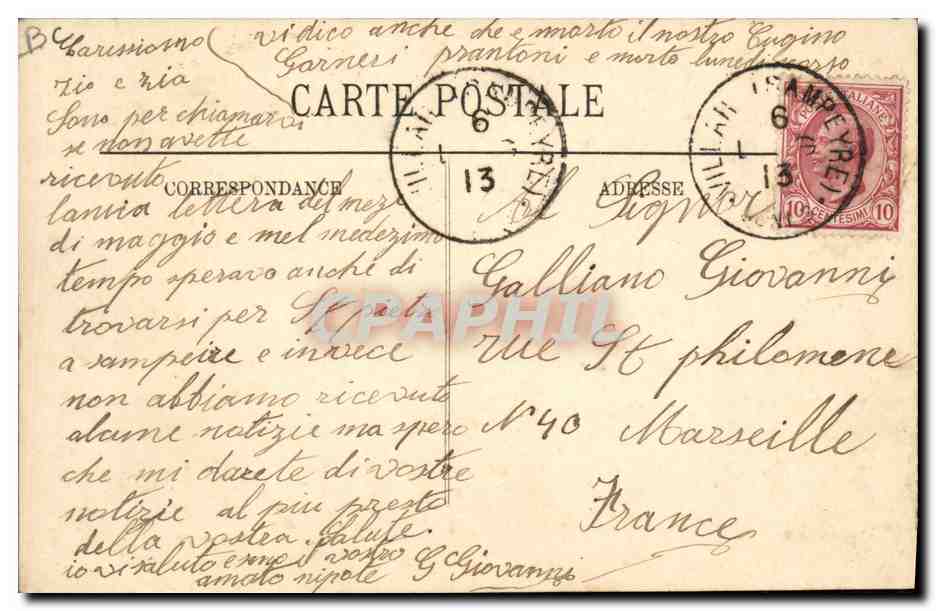 BC
Carissiamo
zio e zia
vi dico anche che e morto il nostro Cugino
Garneri prantoni e morto lunedi scorso
CARTE POSTALE
Sono per chiamarvi
se non avette
ricevuto
CORRESPONDANCE
ADRESSE
lamia lettera del meze
di maggio e mel medezimo
tempo speravo anche di
trovarsi per St
a sampeire e invece
non abbiamo ricevuto
alcune notizie ma spero
che mi darete di vostre
notizie al piu presto
della vostra salute.
io vi saluto e sono il vostro
amato nipote G Giovanni
Al Signor
Galliano Giovanni
rue St philomene
N 40 Marseille
France
VILLAR (SAMPEYRE)
6
13
VILLAR (SAMPEYRE)
6
13
POSTE ITALIANE
10 CENTESIMI 10
CPAPHIL